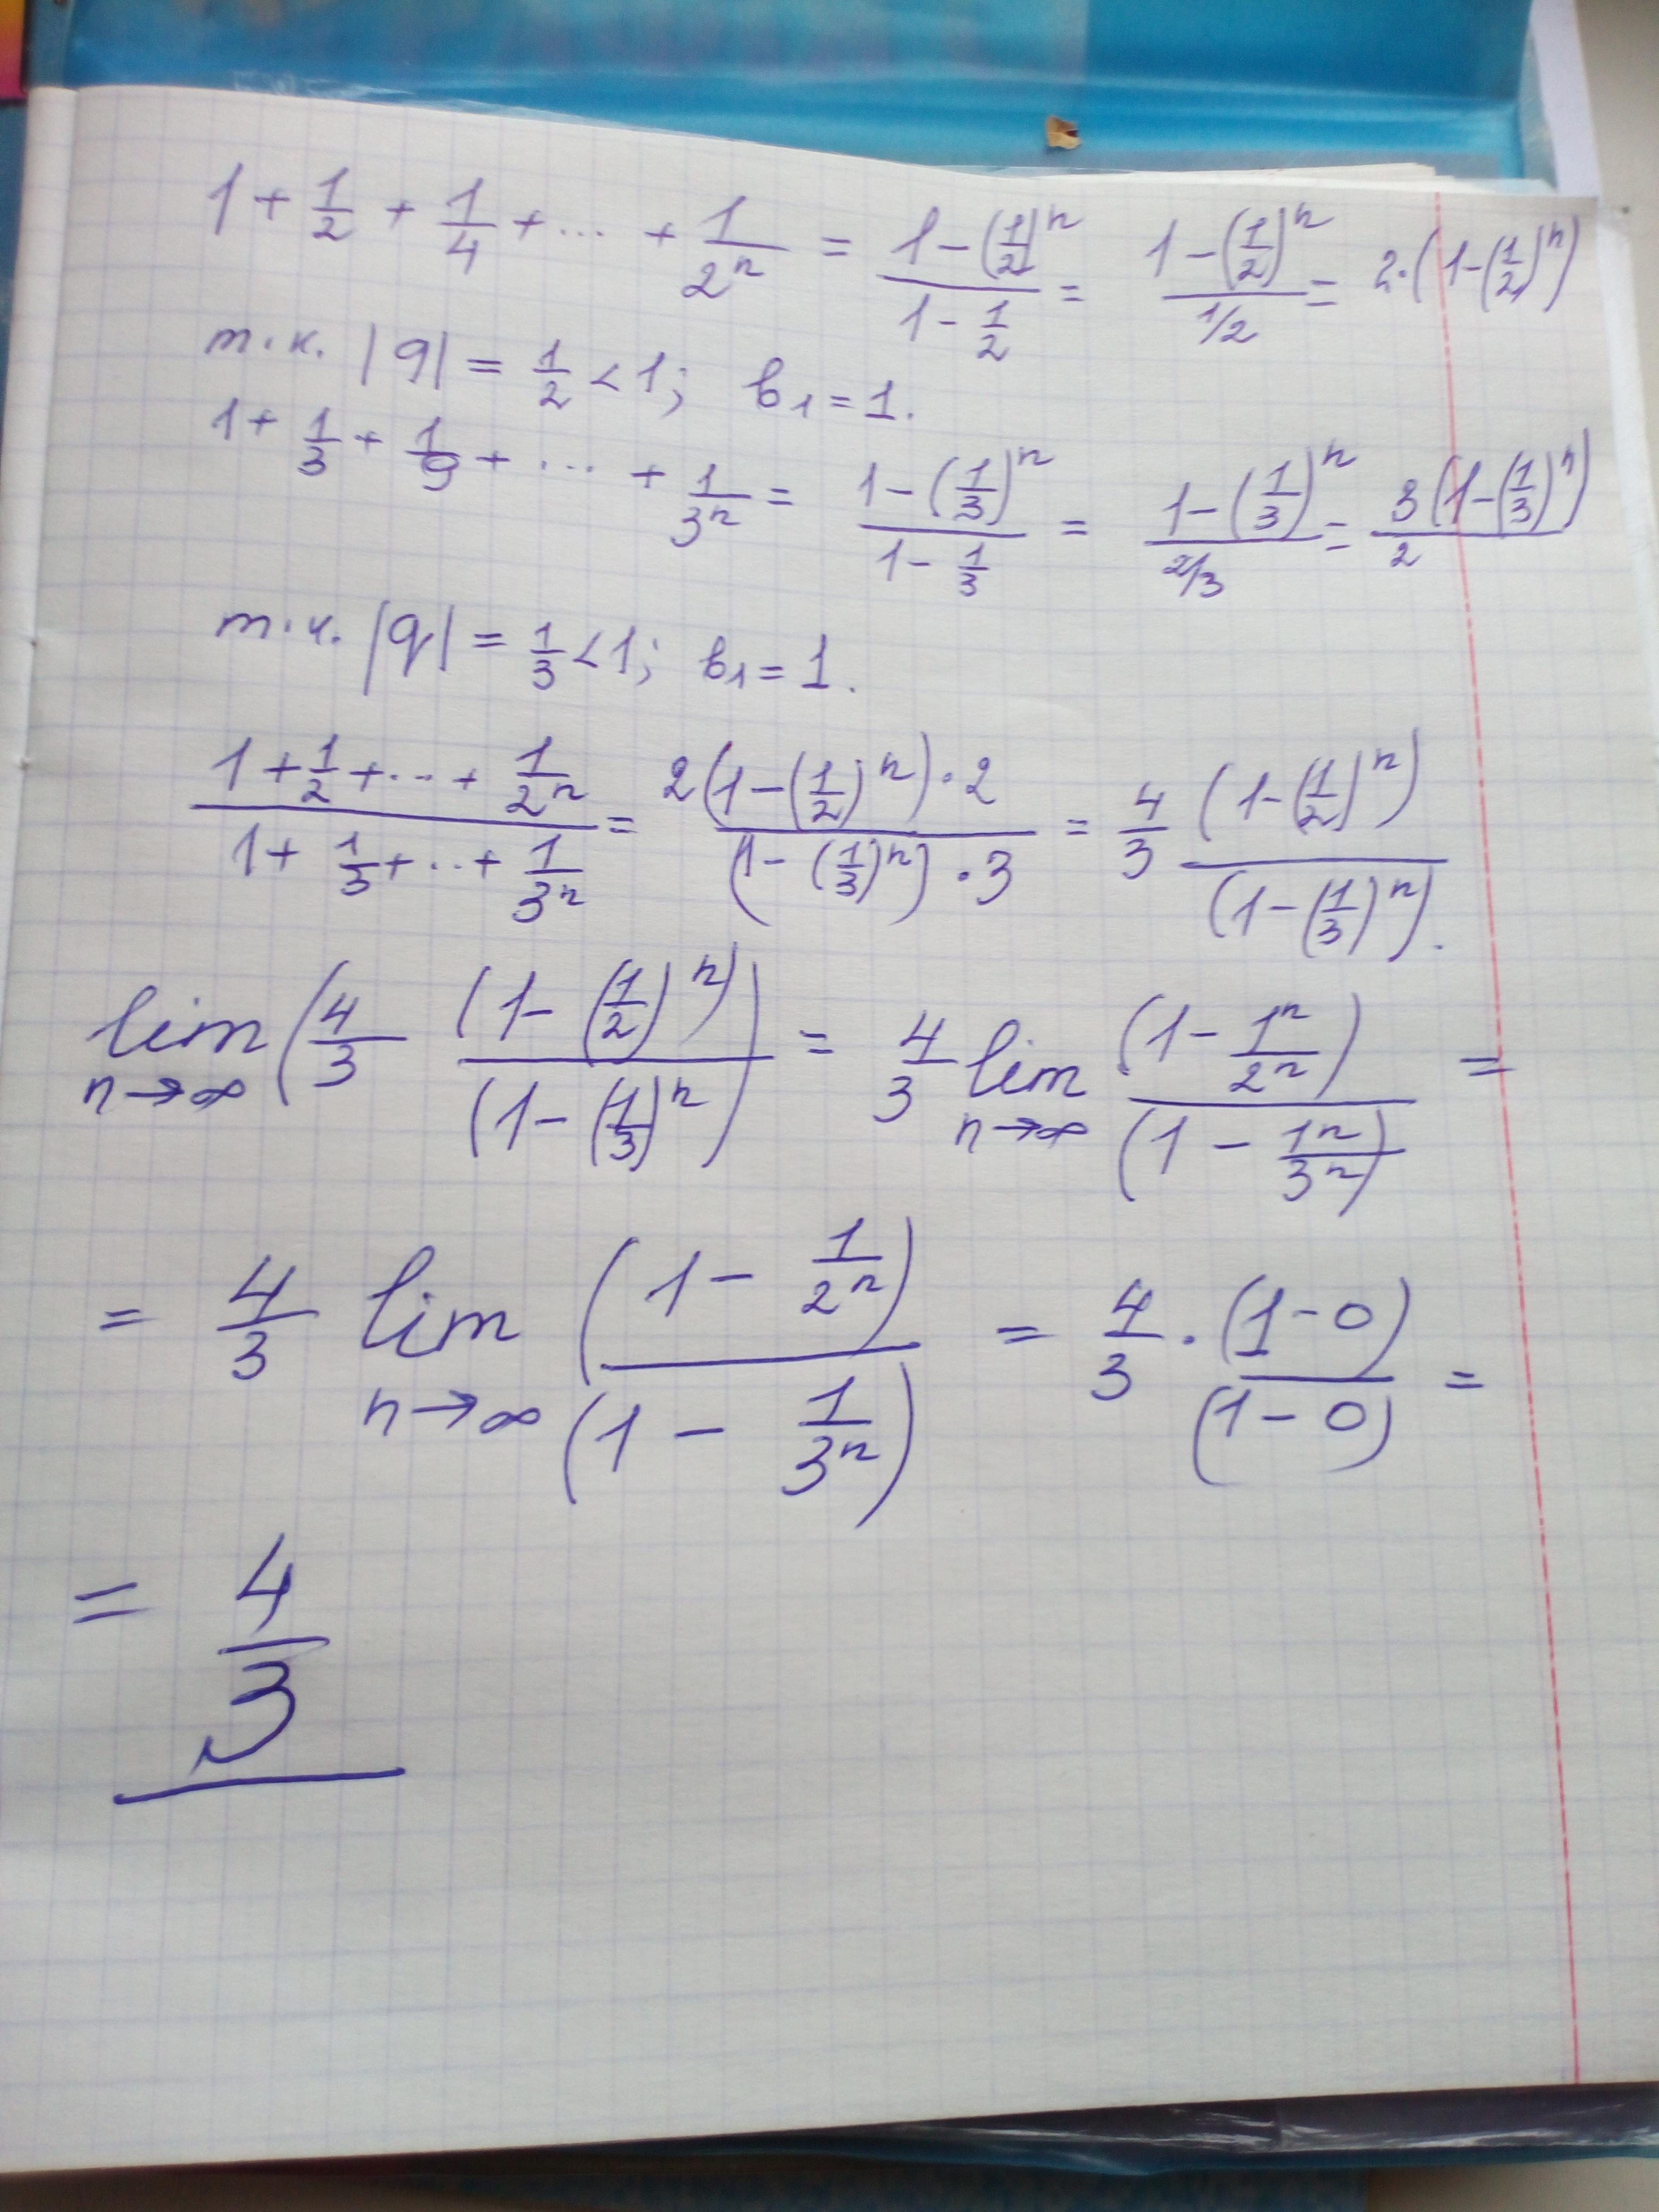 1 + 1/2 + 1/4 + ... + 1/2^n = (1 - (1/2)^n)/(1 - 1/2) = (1 - (1/2)^n)/(1/2) = 2·(1 - (1/2)^n)
т.к. |q| = 1/2 < 1; b₁ = 1.
1 + 1/3 + 1/9 + ... + 1/3^n = (1 - (1/3)^n)/(1 - 1/3) = (1 - (1/3)^n)/(2/3) = 3(1 - (1/3)^n)/2
т.к. |q| = 1/3 < 1; b₁ = 1.
(1 + 1/2 + ... + 1/2^n)/(1 + 1/3 + ... + 1/3^n) = (2(1 - (1/2)^n)·2)/((1 - (1/3)^n)·3) = 4/3 (1 - (1/2)^n)/(1 - (1/3)^n).
lim n→∞ (4/3 (1 - (1/2)^n)/(1 - (1/3)^n)) = 4/3 lim n→∞ (1 - 1^n/2^n)/(1 - 1^n/3^n) =
= 4/3 lim n→∞ (1 - 1/2^n)/(1 - 1/3^n) = 4/3 · (1 - 0)/(1 - 0) =
= 4/3